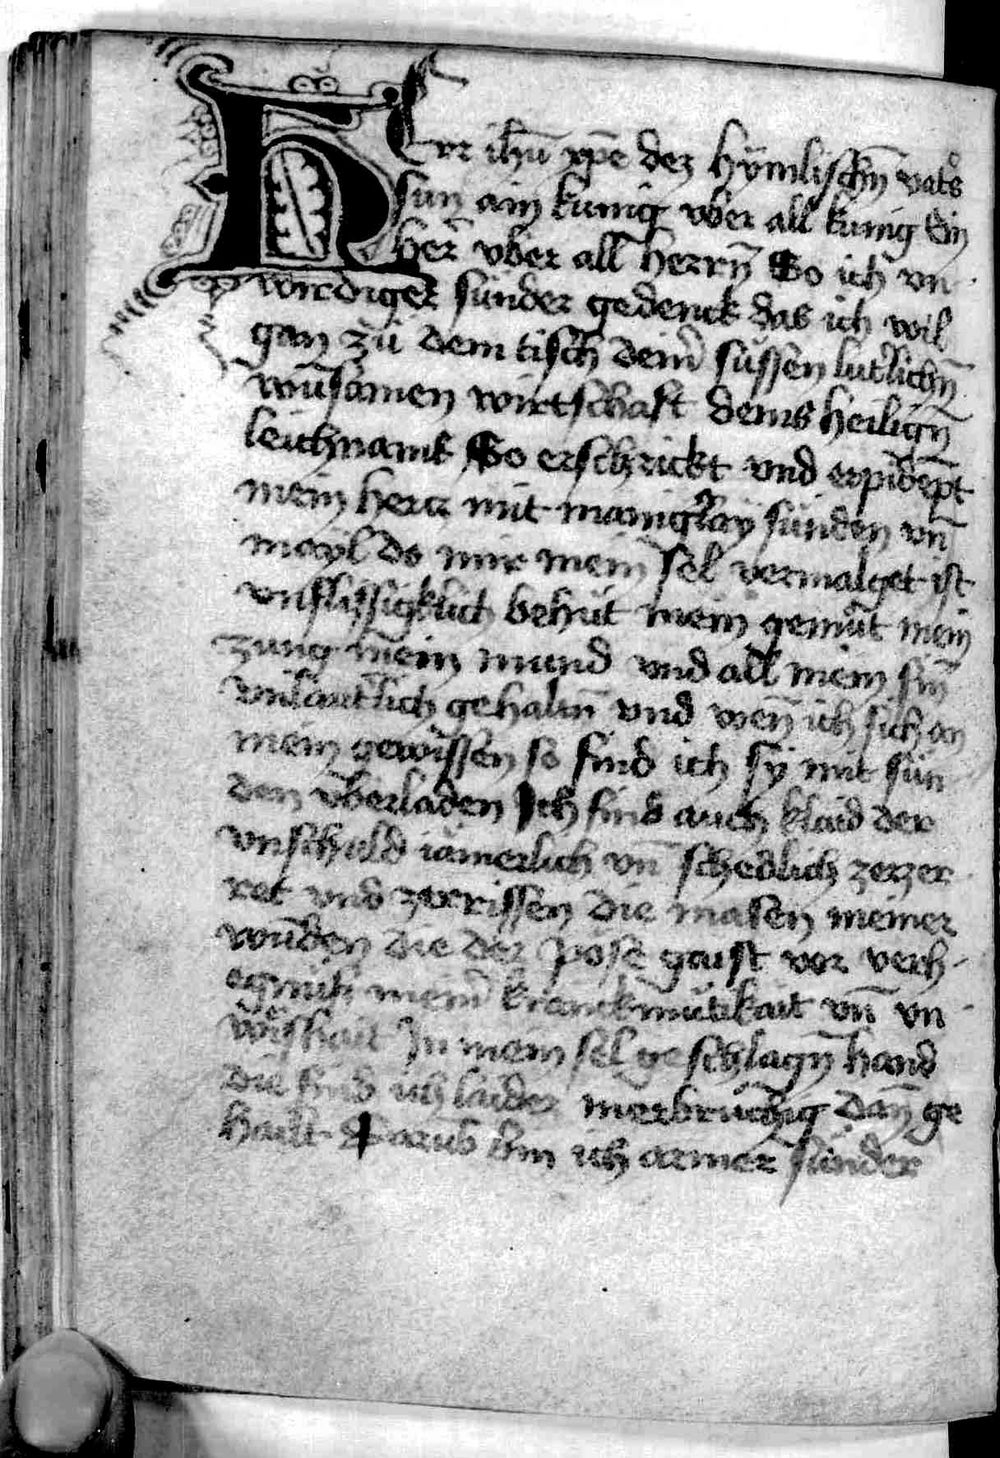 HErr ihū xp̄e dez hymlischn̄ vats
sun ain kunig vber all kunig Ein
her vber all herrn̄ So ich vn
wirdiger sünder gedenck das ich wil
gan zů dem tisch deinr süssen lutrlichn̄
wunsamen wirtschaft deins heilign̄
leichnams So erschrickt vnd erpidempt
mein hercz mit manigrlay sünden vn̄
mayl do mir mein sel vermalget ist
vnflissigklich behüt mein gemüt mein
zung mein mund vnd all mein sin̄
vnlautrlich gehaltn̄ vnd wen̄ ich sich an
mein gewissen so find ich sy mit sün
den vberladen Ich find auch klaid der
vnschuld iämerlich vn̄ schedlich zerzer
ret vnd zerrissen die masen meiner
wunden die der pose gaist vor verh
meinr kranckmütikait vn̄ vn
wishait In mein sel geschlagn̄ hand
die find ich laider merbruchig dan̄ ge
hailt Darub bin ich armer sünder